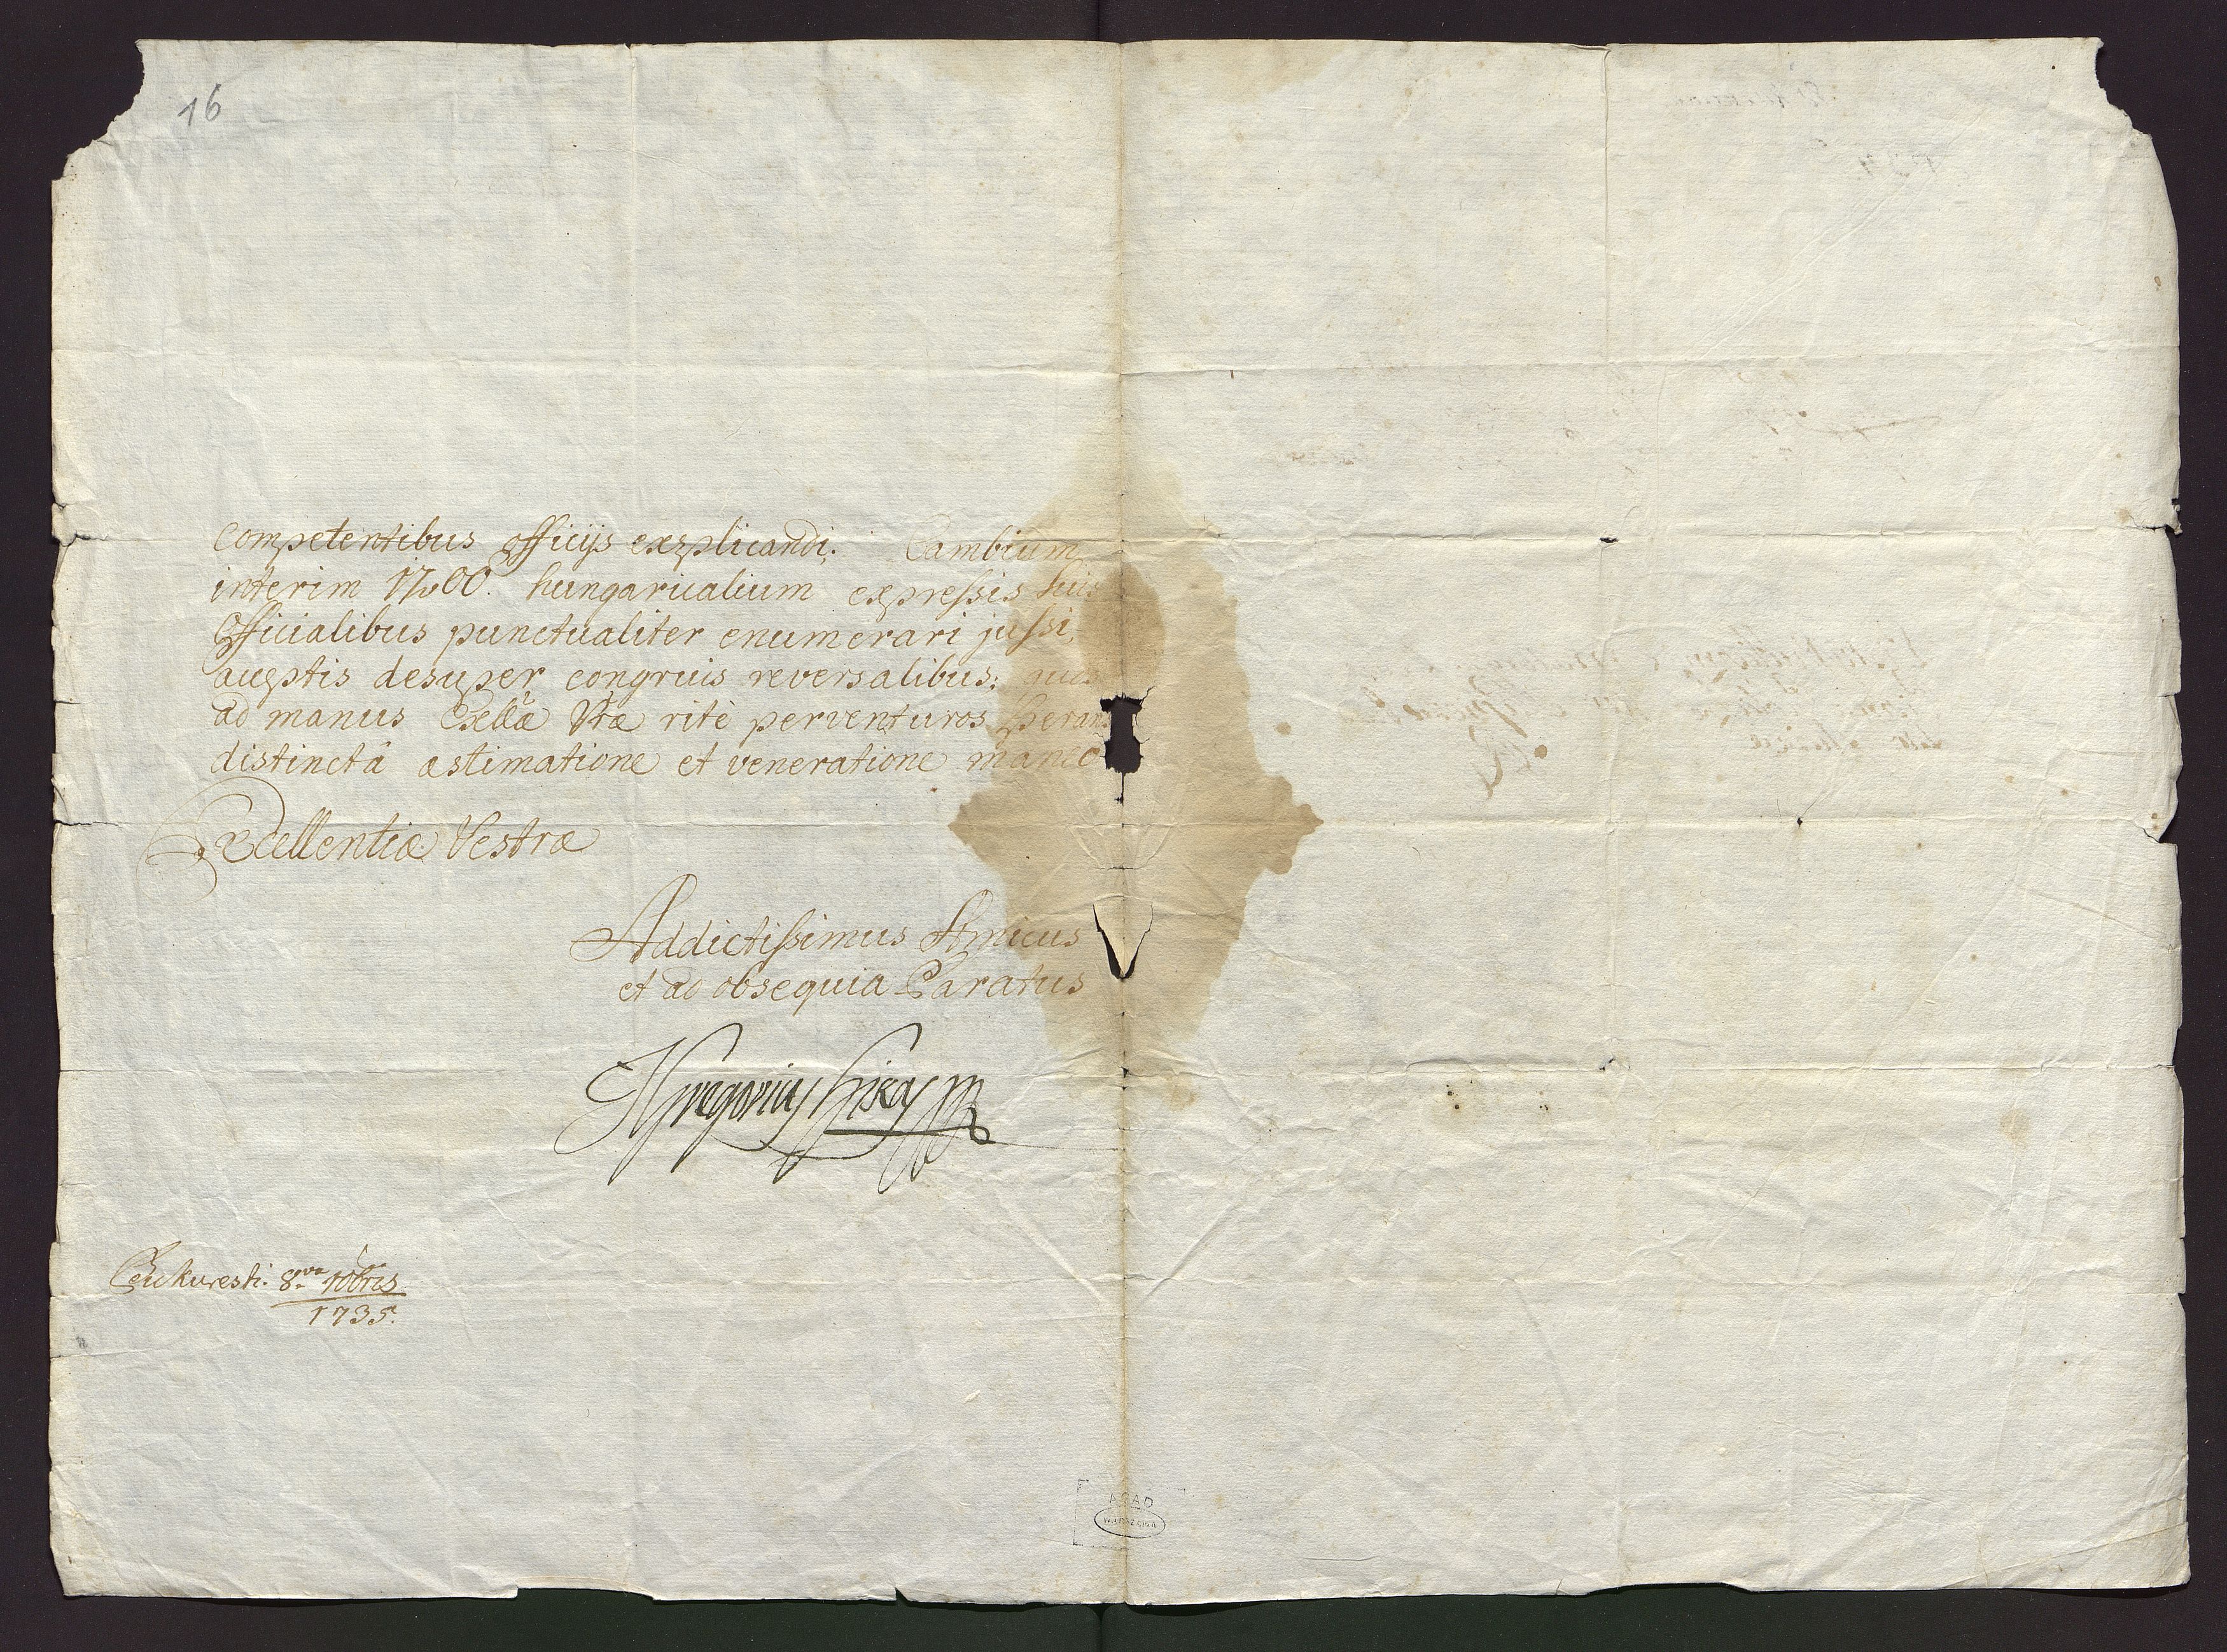 16
competentibus officijs explicandi. Cambium
interim 1700. hungaricalium expressis suis
Officialibus punctualiter enumerari jussi,
aceptis desuper congruis reversalibus: quos
ad manus Exllæ Vræ ritè perventuros sperans
distinctâ æstimatione et veneratione maneo
Excellentiæ Vestræ
Addictissimus Amicus
et ad obsequia Paratus
Gregorius Gikas
Bukuresti: 8va 10bris
1735.
AGAD
WARSZAWA